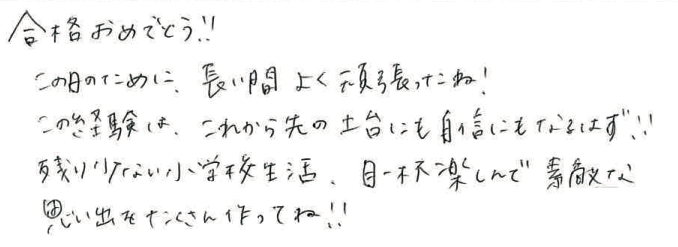 合格おめでとう!!
この日のために、長い間よく頑張ったね!
この経験は、これから先の土台にも自信にもなるはず!!
残り少ない小学校生活、目一杯楽しんで素敵な
思い出をたくさん作ってね!!